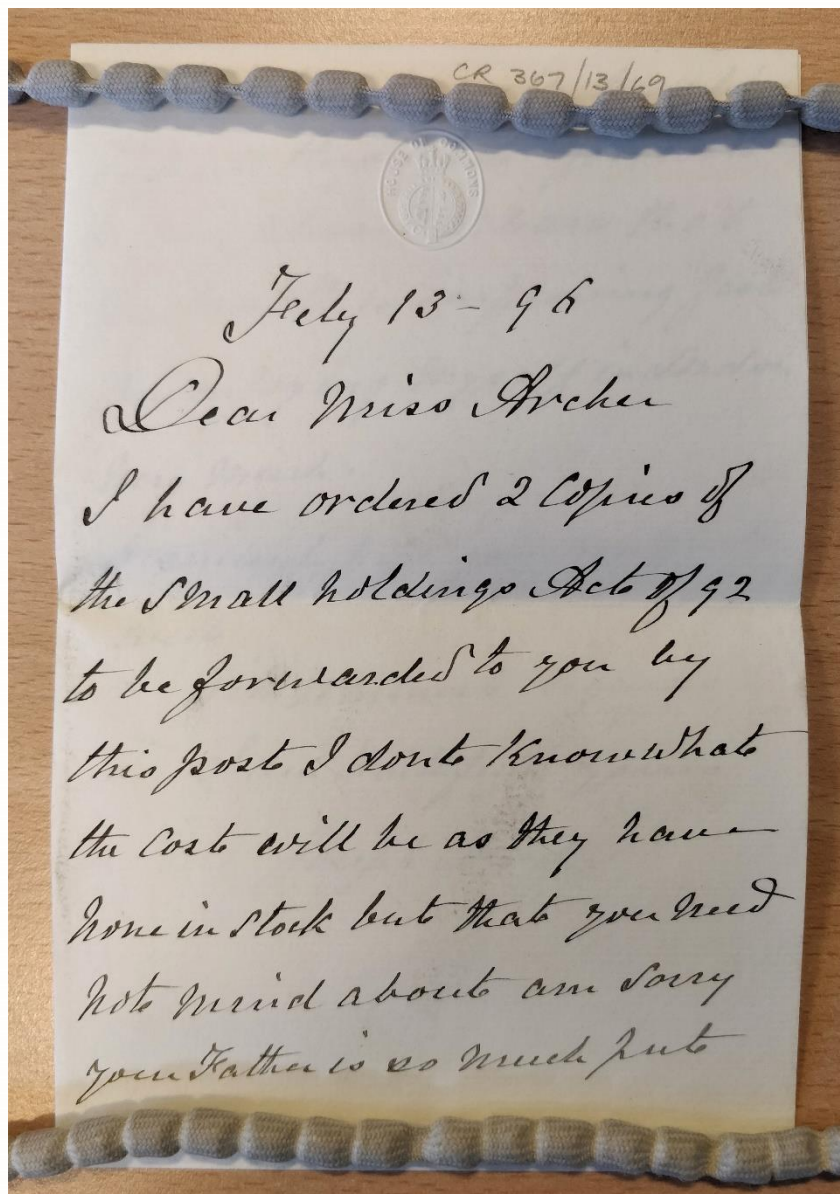 CR 367/13/69
HOUSE OF COMMONS
Feby 13 - 96
Dear Miss Archer
I have ordered 2 Copies of
the Small holdings Act of 92
to be forwarded to you by
this post I dont Know what
the Cost will be as they have
none in Stock but that you need
not mind about am Sorry
your Father is so much put